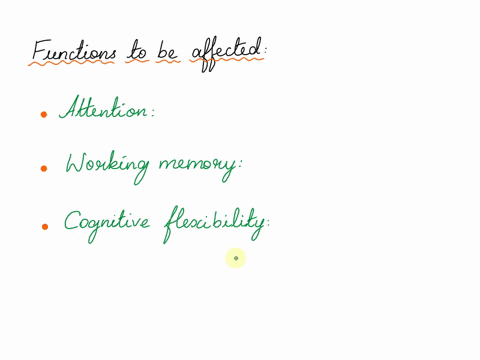 Functions to be affected:
• Attention:
• Working memory:
• Cognitive flexibility: